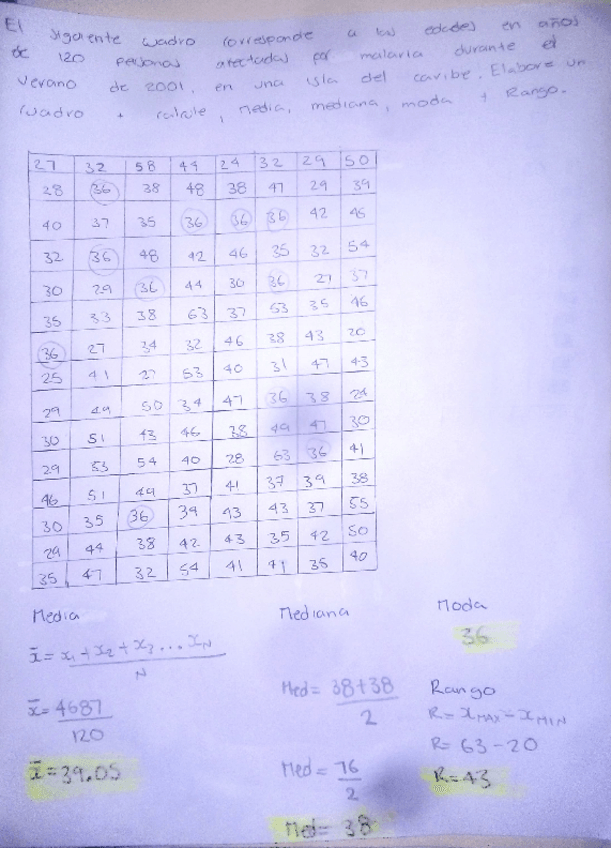 El siguiente cuadro corresponde a las edades en años
de 120 personas afectadas por malaria durante el
verano de 2001, en una isla del caribe. Elabore un
cuadro + calcule, media, mediana, moda + Rango.
27 32 58 44 24 32 29 50
28 36 38 48 38 47 29 39
40 37 35 36 36 36 42 46
32 36 48 42 46 35 32 54
30 29 36 44 30 36 27 37
35 33 38 63 37 53 35 46
36 27 34 32 46 38 43 20
25 41 27 53 40 31 47 43
29 49 50 34 47 36 38 24
30 51 43 46 38 49 47 30
29 53 54 40 28 63 36 41
46 51 49 37 41 37 39 38
30 35 36 39 43 43 37 55
29 44 38 42 43 35 42 50
35 47 32 54 41 41 35 40
Media Mediana Moda
36
x̄ = x₁ + x₂ + x₃ ... xN
N
Med = 38+38 Rango
2
x̄ = 4687 R = XMAX - XMIN
120
R = 63 - 20
x̄ = 39.05 Med = 76 R = 43
2
Med = 38